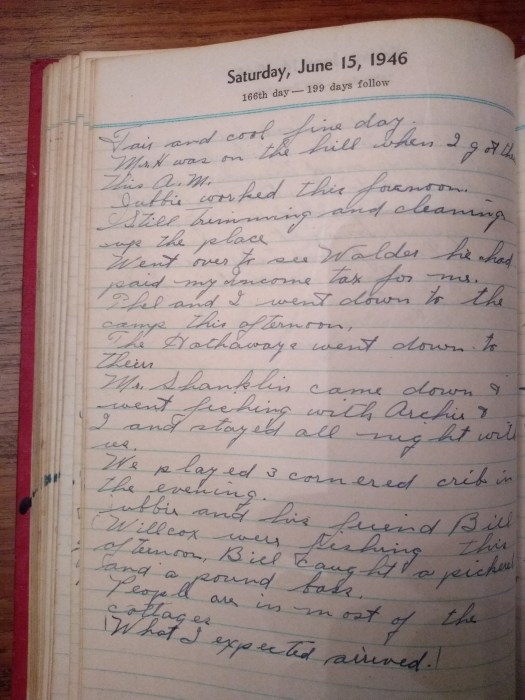 Saturday, June 15, 1946
166th day — 199 days follow
Fair and cool fine day.
Mr H was on the hill when I got
this A.M.
Bubbie worked this forenoon.
Still trimming and cleaning
up the place
Went over to see Walder he had
paid my income tax for me.
Phil and I went down to the
camp this afternoon,
The Hathaways went down to
theirs
Mr. Shanklin came down &
went fishing with Archie &
I and stayed all night with
us.
We played 3 cornered crib in
the evening.
ubbie and his friend Bill
Willcox were fishing this
afternoon, Bill caught a pickerel
and a pound bass.
People are in most of the
cottages
What I expected arrived.!